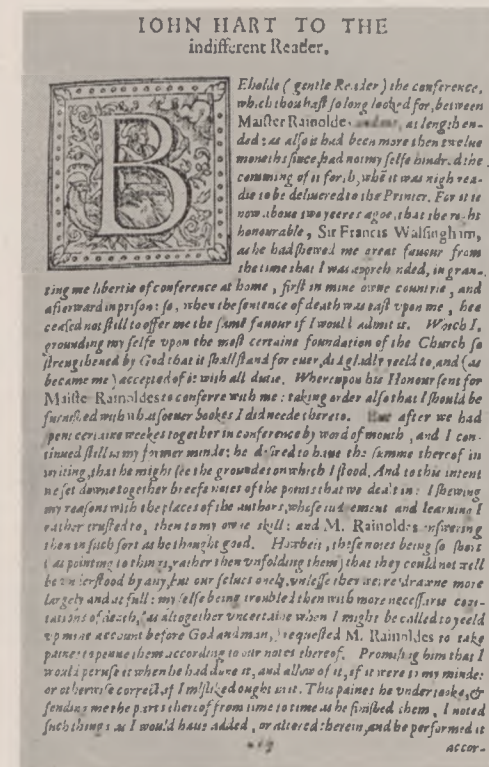 IOHN HART TO THE
indifferent Reader.
BEholde (gentle Reader) the conference,
which thou haſt ſo long looked for, between
Maiſter Rainolde at length en-
ded: as alſo it had been more then twelue
moneths ſince, had not my ſelfe hindred the
comming of it forth, whē it was nigh rea-
die to be deliuered to the Printer. For it is
now aboue two yeeres agoe, that the right
honourable, Sir Francis Walſingham,
as he had ſhewed me great fauour from
the time that I was apprehended, in gran-
ting me libertie of conference at home, firſt in mine owne countrie, and
afterward in priſon: ſo, when the ſentence of death was paſt vpon me, hee
ceaſed not ſtill to offer me the ſame fauour if I would admit it. Which I,
grounding my ſelfe vpon the moſt certaine foundation of the Church ſo
ſtrengthened by God that it ſhall ſtand for euer, did gladly yeeld to, and (as
became me) accepted of it with all dutie. Whereupon his Honour ſent for
Maiſter Rainoldes to conferre with me: taking order alſo that I ſhould be
furniſhed with whatſoeuer bookes I did neede thereto. after we had
ſpent certaine weekes together in conference by word of mouth, and I con-
tinued ſtill in my former minde: he deſired to haue the ſumme thereof in
writing, that he might ſee the groundes on which I ſtood. And to this intent
we ſet downe together breefe notes of the points that we dealt in: I ſhewing
my reaſons with the places of the authors, whoſe iudgement and learning I
rather truſted to, then to my owne skill: and M. Rainoldes anſwering
them in ſuch ſort as he thought good. Howbeit, theſe notes being ſo ſhort
(as pointing to things, rather then vnfolding them) that they could not well
be vnderſtood by any, but our ſelues onely, vnleſſe they were drawne more
largely and at full: my ſelfe being troubled then with more neceſſarie cogi-
tations of death, (as altogether vncertaine when I might be called to yeeld
vp mine account before God and man,) requeſted M. Rainoldes to take
paines to penne them according to our notes thereof. Promiſing him that I
would peruſe it when he had done it, and allow of it, if it were to my minde:
or otherwiſe correct, if I miſliked ought in it. This paines he vndertooke, &
ſending me the parts thereof from time to time as he finiſhed them, I noted
ſuch things as I would haue added, or altered therein, and he performed it
accor-